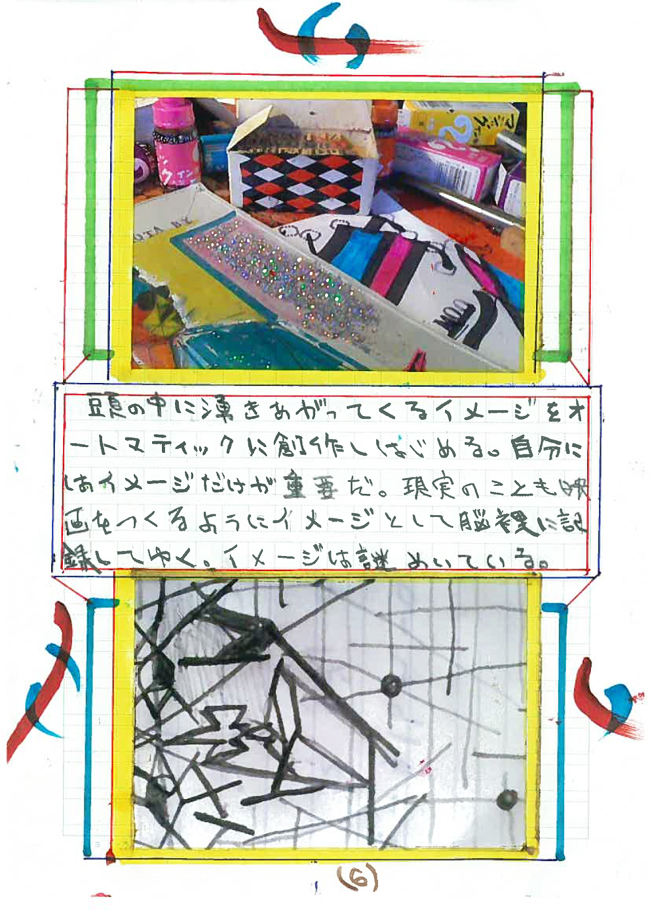 OTA BY
頭の中に湧きあがってくるイメージをオ
ートマティックに創作しはじめる。自分に
はイメージだけが重要だ。現実のことも映
画をつくるようにイメージとして脳裡に記
録してゆく。イメージは謎めいている。
(6)